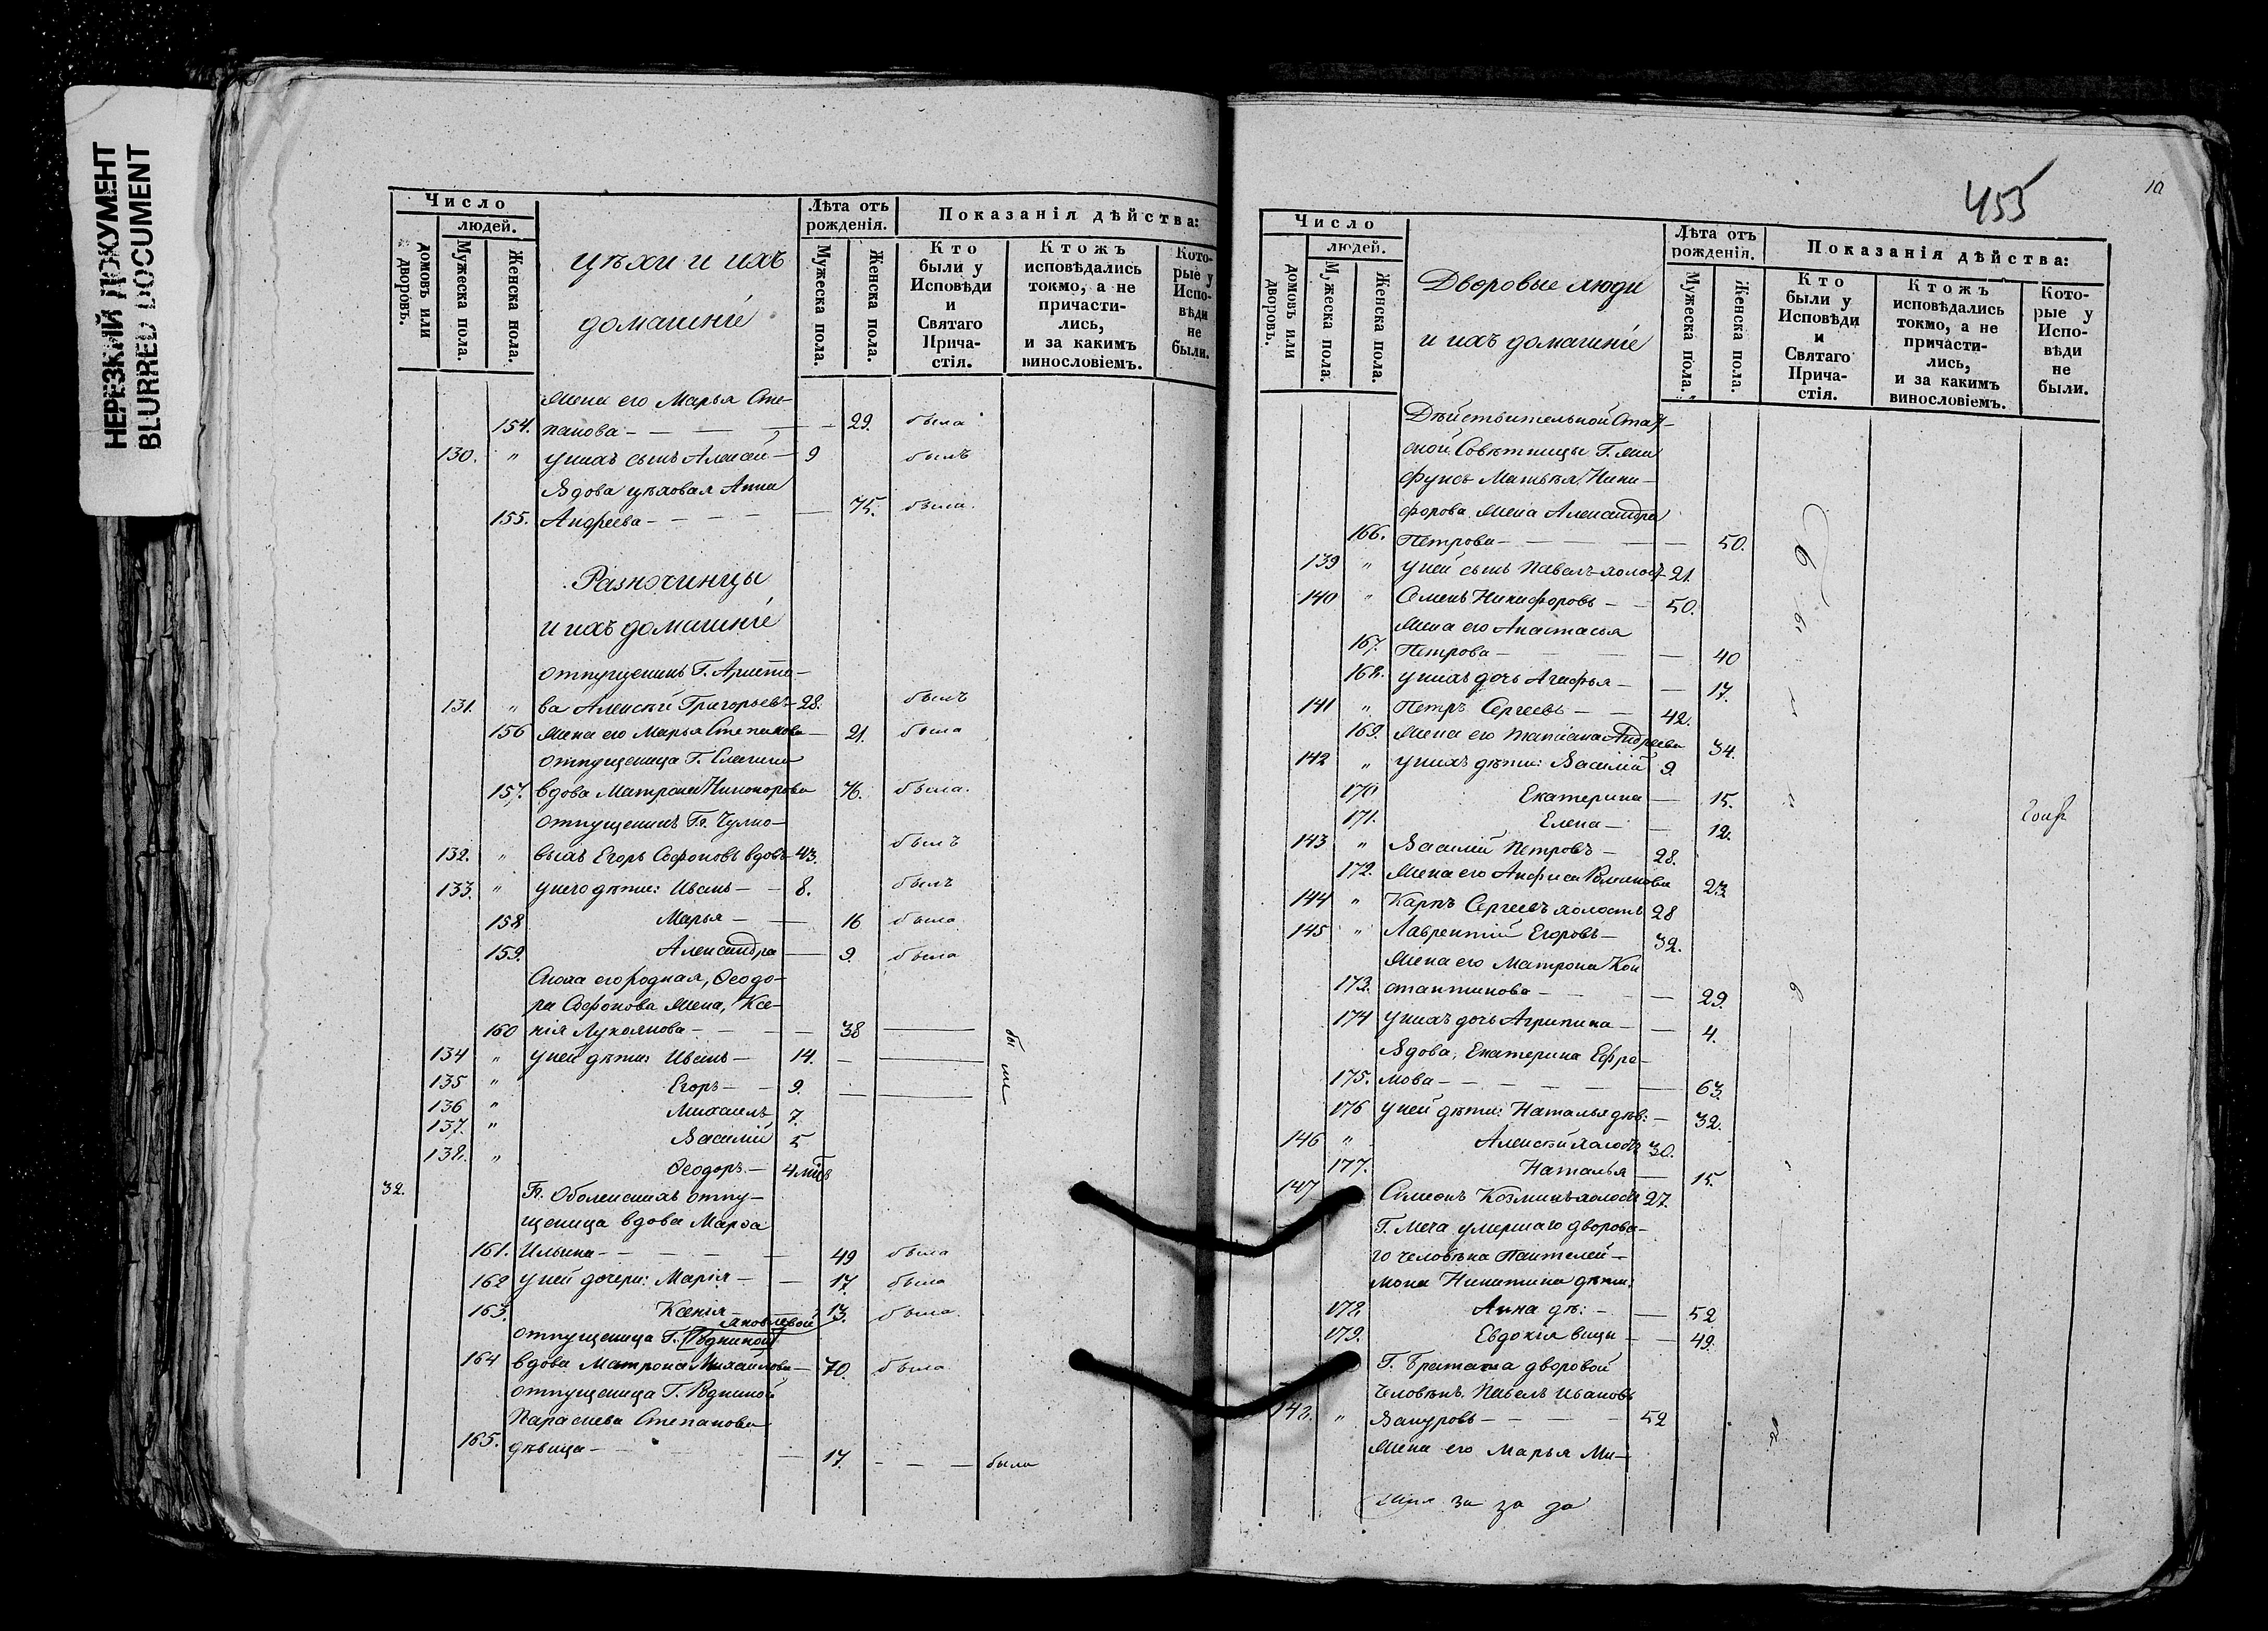 НЕРЕЗКИЙ ДОКУМЕНТ
BLURRED DOCUMENT
Число
людей.
домовъ или дворовъ.
Мужеска пола.
Женска пола.
цѣхи и ихъ
домашніе
Лѣта отъ рожденія.
Мужеска пола.
Женска пола.
Показанія дѣйства:
Кто были у Исповѣди и Святаго Прича-стія.
Ктожъ исповѣдались токмо, а не причасти-лись, и за какимъ винословіемъ.
Кото-рые у Испо-вѣди не были.
жена его Марья Сте-
154. панова - 29. была
130. " у нихъ сынъ Алексей - 9 былъ
Вдова цѣховая Анна
155. Андреева - 75. была.
Разночинцы
и ихъ домашніе
отпущенникъ Г. Аристо-
131. " ва Алексѣй Григорьевъ - 28. былъ
156 жена его Марья Степанова - 21. была
отпущеница Г.
157. вдова Матрона - 76. была.
отпущенникъ Гг. Чулко-
132. " выхъ Егоръ Софоновъ вдовъ - 43. былъ
133. " у него дѣти: Иванъ - 8. былъ
158 Марья - 16 была
159. Александра - 9. была
Сноха его родная, Ѳеодо-
ра Софонова жена, Ксе-
160 нія Лукоянова - 38
134 " у ней дѣти: Иванъ - 14. -
135 " Егоръ - 9.
136 " Михаилъ 7.
137. " Василій 5
138. " Ѳеодоръ - 4 мѣс
32. Гг. Оболенскихъ отпу-
щеница вдова Марѳа
161. Ильина - 49 была
162 у ней дочери: Марія - 17. была
163. Ксенія - 13. была
Яковлевой
отпущеница Г. Рѣдкиной
164 вдова Матрона Михайлова - 70. была
отпущеница Г. Рѣдкиной
Параскева Степанова
165. дѣвица - 17. - - - была
455
10
Число
людей.
домовъ или дворовъ.
Мужеска пола.
Женска пола.
Дворовые люди
и ихъ домашніе
Лѣта отъ рожденія.
Мужеска пола.
Женска пола.
Показанія дѣйства:
Кто были у Исповѣди и Святаго Прича-стія.
Ктожъ исповѣдались токмо, а не причасти-лись, и за какимъ винословіемъ.
Кото-рые у Испо-вѣди не были.
Дѣйствительной Стат-
ской Совѣтницы Г.
Матвѣя Ники-
форова жена Александра
166. Петрова - 50.
139 " у ней сынъ Павелъ холост 21.
140 " Семенъ Никифоровъ - 50.
жена его Анастасья
167. Петрова - 40
168. у нихъ дочь Агафья - 17.
141 " Петръ Сергеевъ - 42.
169. жена его Татіана Андреева 34.
142 " у нихъ дѣти: Василій 9.
170 Екатерина - 15.
171. Елена - 12.
143 " Василій Петровъ - 28.
172. жена его Анфиса Романова 23
144 " Карпъ Сергеевъ холостъ 28
145 " Лаврентій Егоровъ - 32.
жена его Матрона Кон
173. стантинова - 29.
174 у нихъ дочь Агрипина - 4.
Вдова, Екатерина Ефре-
175. мова - 63.
176 у ней дѣти: Наталья дѣв: - 32.
146 " Алексѣй холостъ 30.
177. Наталья - 15.
147 Симеонъ Козминъ холостъ 27.
Г. умершаго дворова-
го человѣка Пантелей-
мона Никитина дѣти:
178. Анна дѣ: - 52
179. Евдокія вицы - 49.
Г. дворовой
человѣкъ Павелъ Ивановъ
148. " - 52
жена его Марья Ми-